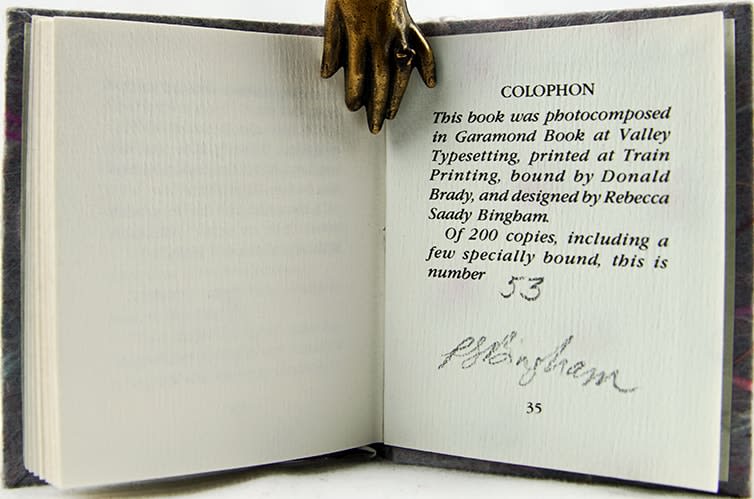 COLOPHON
This book was photocomposed
in Garamond Book at Valley
Typesetting, printed at Train
Printing, bound by Donald
Brady, and designed by Rebecca
Saady Bingham.
Of 200 copies, including a
few specially bound, this is
number 53
RSBingham
35